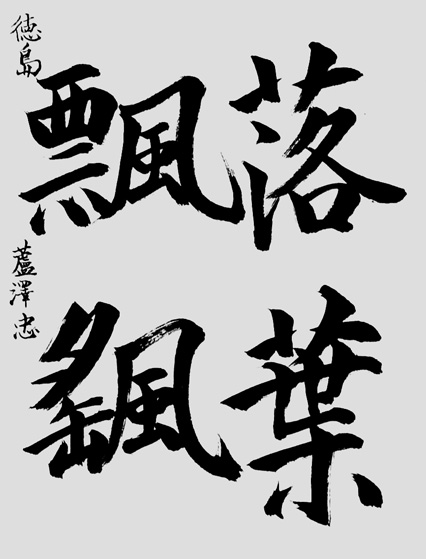 落葉
飄颻
徳島
蘆澤忠